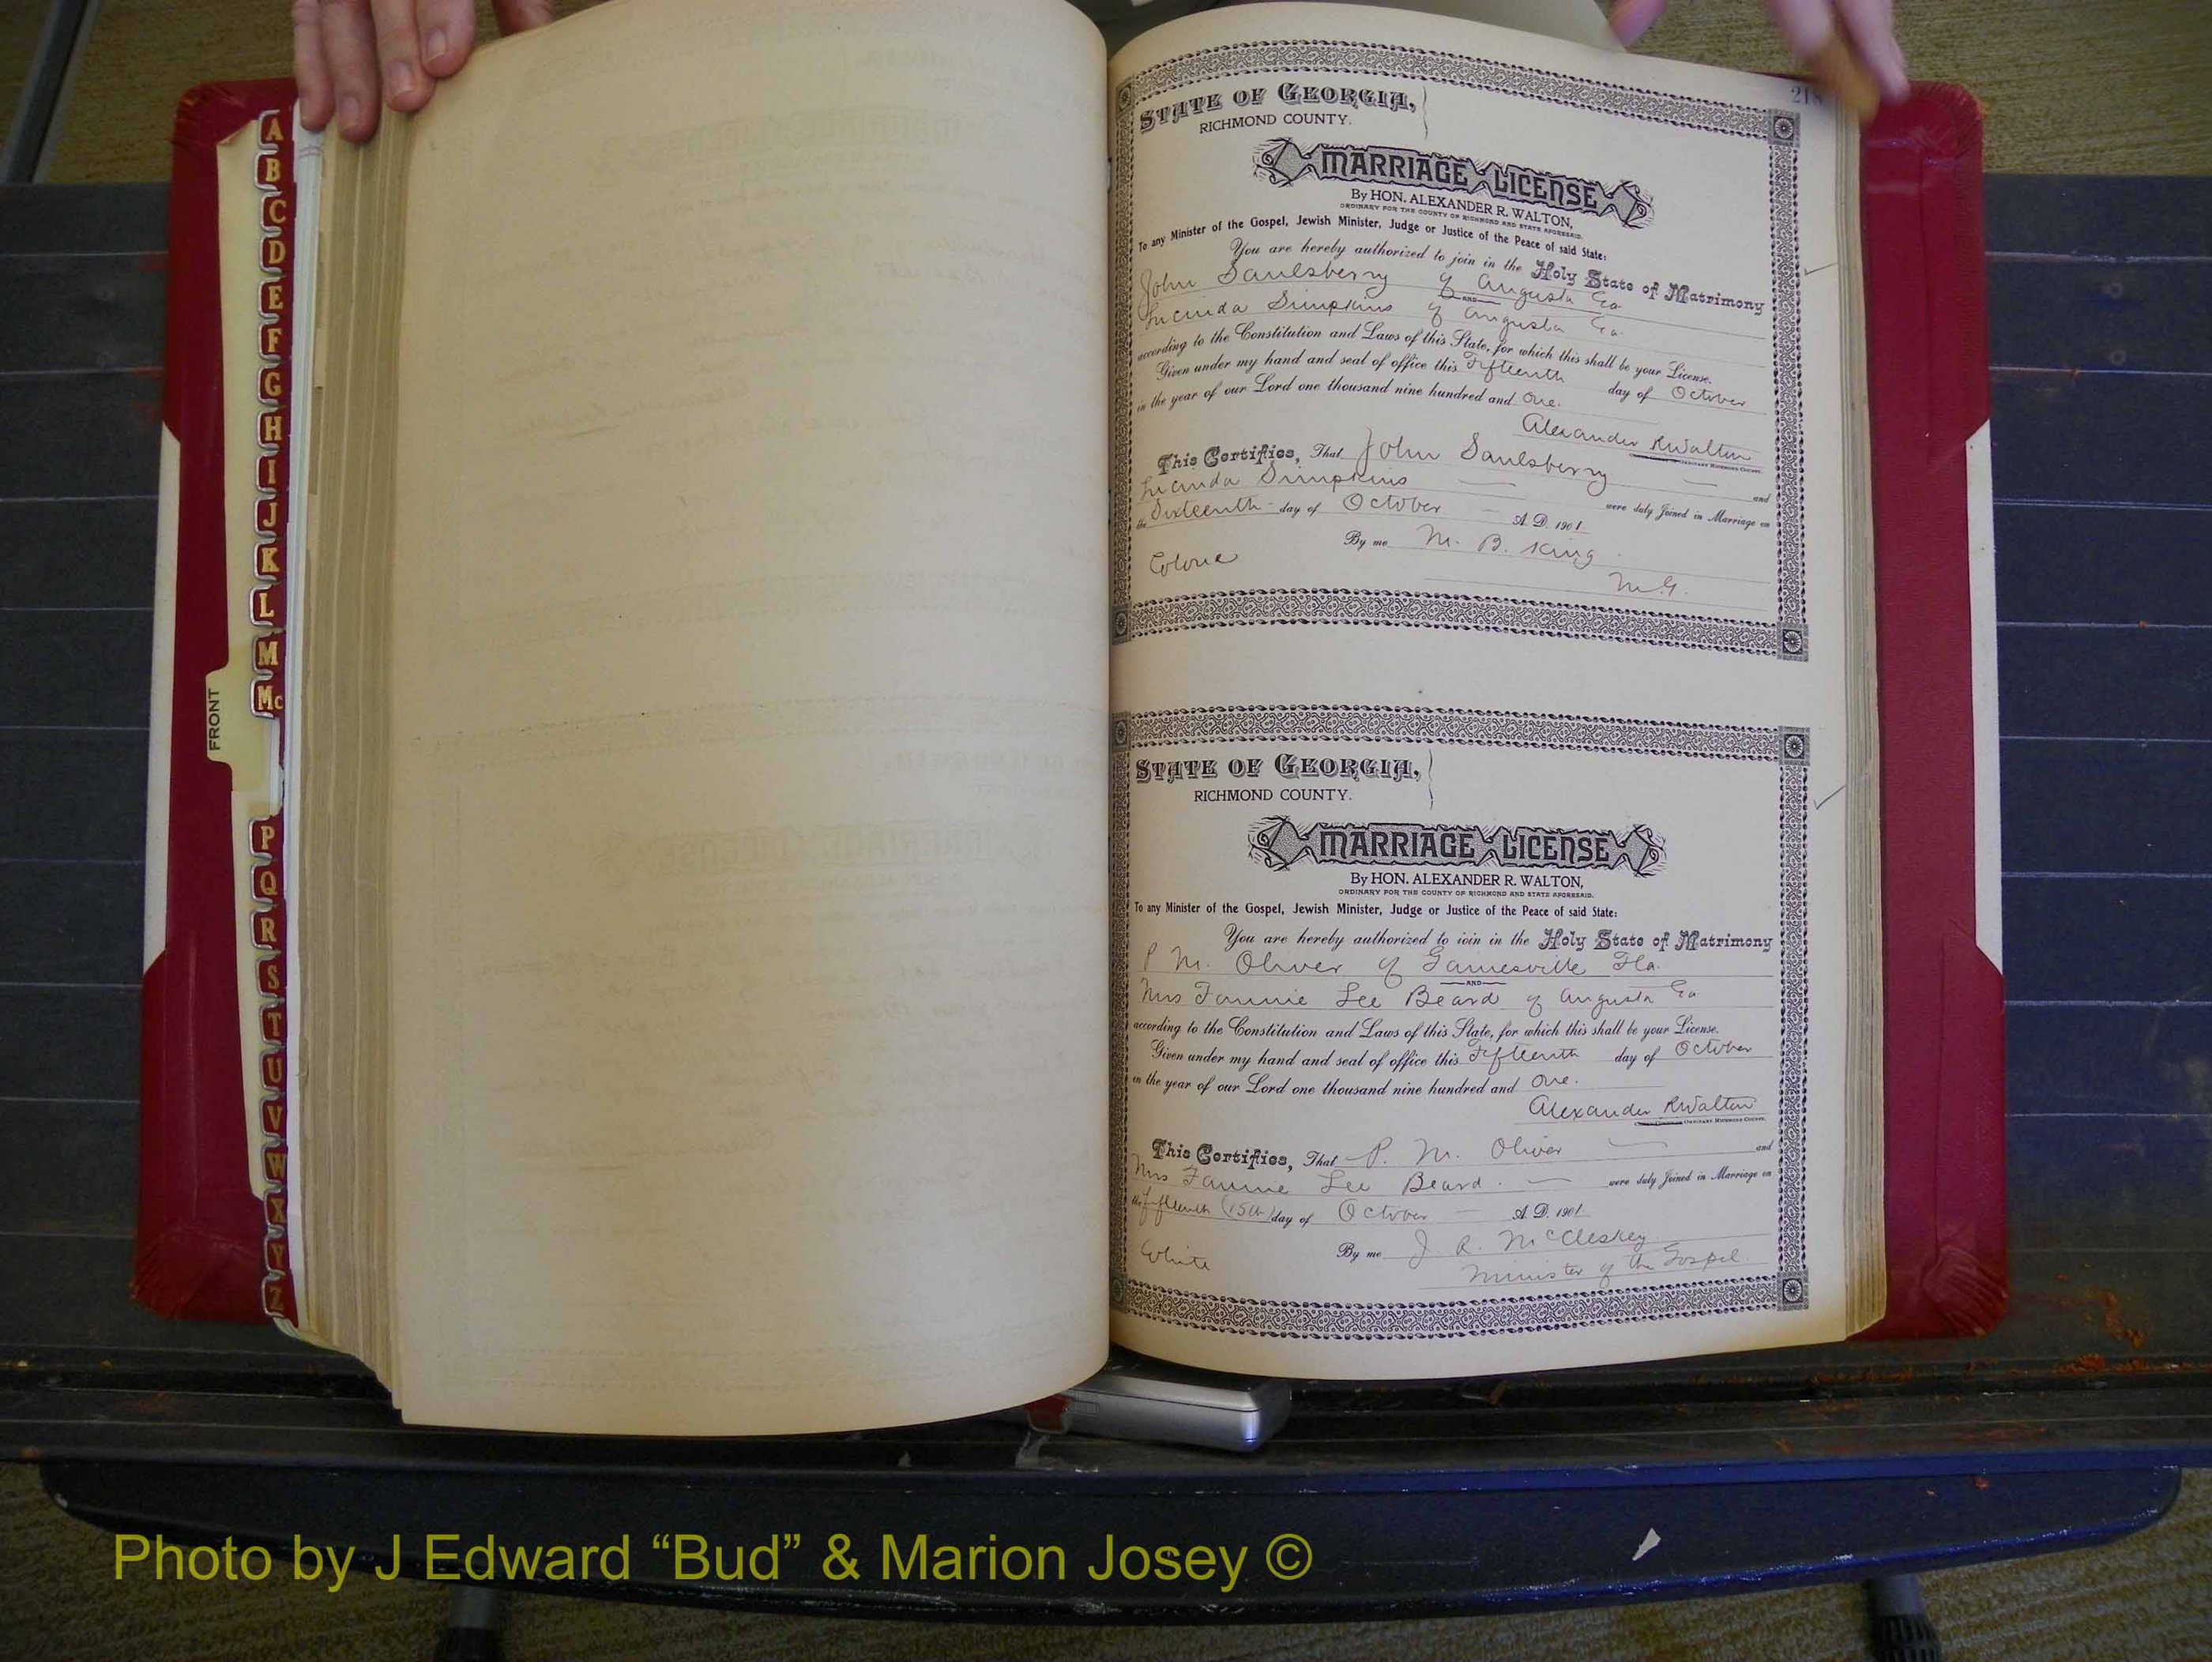 A
B
C
D
E
F
G
H
I
J
K
L
M
Mc
FRONT
P
Q
R
S
T
U
V
W
X
Y
Z
218
STATE OF GEORGIA,
RICHMOND COUNTY.
MARRIAGE LICENSE
By HON. ALEXANDER R. WALTON,
ORDINARY FOR THE COUNTY OF RICHMOND AND STATE AFORESAID.
To any Minister of the Gospel, Jewish Minister, Judge or Justice of the Peace of said State:
You are hereby authorized to join in the Holy State of Matrimony
John Saulsberry of Augusta Ga
AND
Lucinda Simpkins of Augusta Ga
according to the Constitution and Laws of this State, for which this shall be your License.
Given under my hand and seal of office this Fifteenth day of October
in the year of our Lord one thousand nine hundred and One.
Alexander R Walton
ORDINARY RICHMOND COUNTY.
This Certifies, That John Saulsberry and
Lucinda Simpkins were duly Joined in Marriage on
the Sixteenth day of October A. D. 1901.
By me M. B. King
M.G.
STATE OF GEORGIA,
RICHMOND COUNTY.
MARRIAGE LICENSE
By HON. ALEXANDER R. WALTON,
ORDINARY FOR THE COUNTY OF RICHMOND AND STATE AFORESAID.
To any Minister of the Gospel, Jewish Minister, Judge or Justice of the Peace of said State:
You are hereby authorized to join in the Holy State of Matrimony
P. M. Oliver of Gainesville Fla.
AND
Mrs Fannie Lee Beard of Augusta Ga
according to the Constitution and Laws of this State, for which this shall be your License.
Given under my hand and seal of office this Fifteenth day of October
in the year of our Lord one thousand nine hundred and One.
Alexander R Walton
ORDINARY RICHMOND COUNTY.
This Certifies, That P. M. Oliver and
Mrs Fannie Lee Beard. were duly Joined in Marriage on
the fifteenth (15th) day of October A. D. 1901.
White By me J. R. McCleskey
Minister of the Gospel.
Photo by J Edward “Bud” & Marion Josey ©